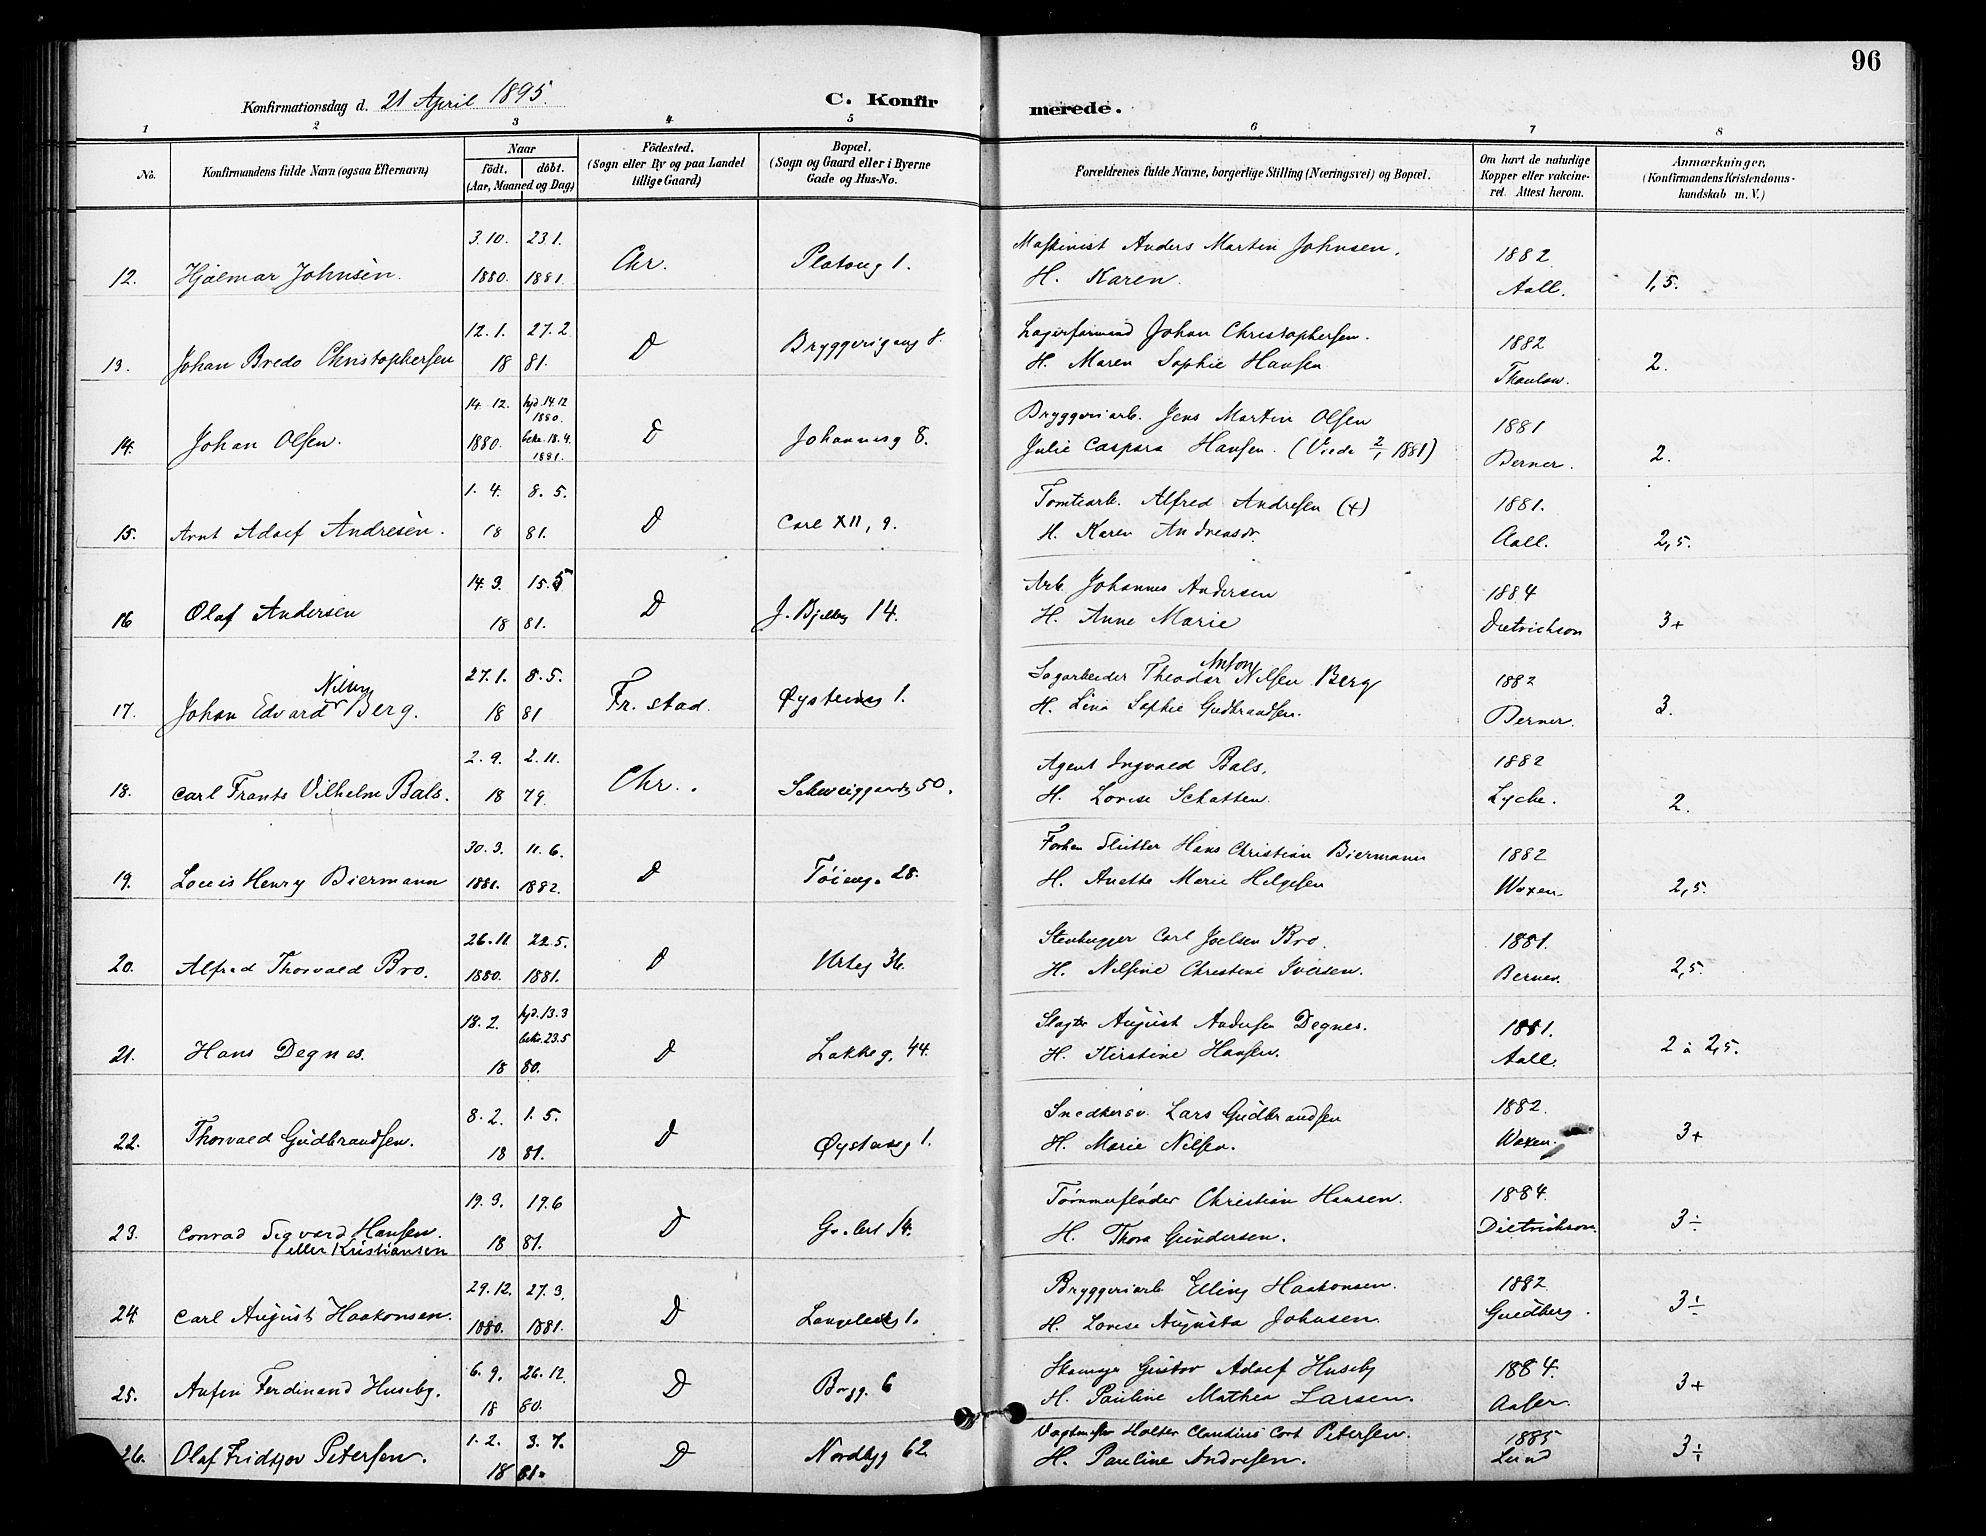 96
Konfirmationsdag d. 21 April 1895.
C. Konfirmerede.
1 2 3 4 5 6 7 8
No.
Konfirmandens fulde Navn (ogsaa Efternavn)
Naar
födt. döbt.
(Aar, Maaned og Dag)
Födested.
(Sogn eller By og paa Landet
tillige Gaard)
Bopæl.
(Sogn og Gaard eller i Byerne
Gade og Hus-No.
Forældrenes fulde Navne, borgerlige Stilling (Næringsvei) og Bopæl.
Om havt de naturlige
Kopper eller vakcine-
ret. Attest herom.
Anmærkninger.
(Konfirmandens Kristendoms-
kundskab m. V.)
3.10. 23.1. Maskinist Anders Martin Johnsen. 1882
12. Hjalmar Johnsen. 1880. 1881. Chr. Platoug 1. H. Karen. Aall. 1,5.
12.1. 27.2 Lagerformand Johan Christophersen. 1882
13. Johan Bredo Christophersen 18 81. D Bryggerigang 8. H. Maren Sophie Hansen Thaulow. 2.
14.12. hjd. 14.12 1880. Bryggeriarb. Jens Martin Olsen 1881
14. Johan Olsen. 1880. bekr. 18.4. 1881. D Johannesg 8. Julie Caspara Hansen. (Viede 2/1 1881) Berner. 2.
1.4. 8.5. Tomtearb. Alfred Andresen (+) 1881.
15. Arnt Adolf Andresen. 18 81. D Carl XII, 9. H. Karen Andreasdr. Aall. 2,5.
14.3. 15.5 Arb. Johannes Andersen 1884
16 Olaf Andersen 18 81. D J. Bjelkeg 14. H. Anne Marie Dietrichson 3+
Nilsen 27.1. 8.5. Sagarbeider Theodor Anton Nilsen Berg 1882
17. Johan Edvard Berg. 18 81 Fr. stad. Øysteinsg 1. H. Lina Sophie Gudbrandsen. Berner. 3.
2.9. 2.11. Agent Ingvald Bals, 1882
18. Carl Frants Vilhelm Bals. 18 79. Chr. Schweiggaardsg 50. H. Lovise Schatten. Lyche. 2.
30.3. 11.6. Hans Christian Biermann 1882
19. Louis Henry Biermann 1881. 1882. D Töieng. 28. H. Anette Marie Helgesen Woxen. 2,5.
26.11 22.5. Stenhugger Carl Joelsen Bro. 1881.
20. Alfred Thorvald Bro. 1880. 1881. D Urteg 36. H. Nilsine Christine Iversen. Berner. 2,5.
18.2. hjd. 13.3 bekr. 23.5 Slagter August Andersen Degnes. 1881.
21. Hans Degnes. 18 80. D Lakkeg. 44. H. Kirstine Hansen. Aall. 2 à 2,5.
8.2. 1.5. Snedkersv. Lars Gudbrandsen 1882.
22. Thorvald Gudbrandsen. 18 81. D Øysteinsg 1. H. Marie Nilsen. Woxen. 3+
19.3. 19.6 Tømmerfløder Christian Hansen. 1884.
23. Conrad Sigvard Hansen. 18 81. D 14. H. Thora Gundersen. Dietrichson. 3÷
eller Kristiansen
29.12. 27.3. Bryggeriarb Elling Haakonsen. 1882
24. Carl August Haakonsen. 1880. 1881. D Langeleg 1. H. Lovise Augusta Johnsen. Guldberg. 3÷
6.9. 26.12. Skomager Gustav Adolf Huseby 1884.
25. Anfin Ferdinand Huseby. 18 80. D Brgg. 6 H. Pauline Mathea Larsen. Aaser. 3+
1.2. 3.7. Vagtmester Holter Claudius Cort Petersen. 1885
26. Olaf Fridtjov Petersen. 18 81. D Nordbyg 62. H. Pauline Andresen. Lund 3÷